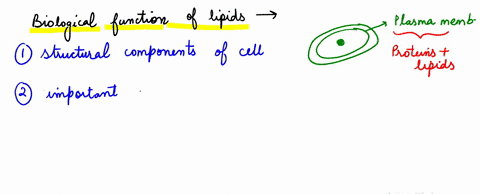 Biological function of lipids →
① structural components of cell
② important
Plasma memb
Proteins +
lipids